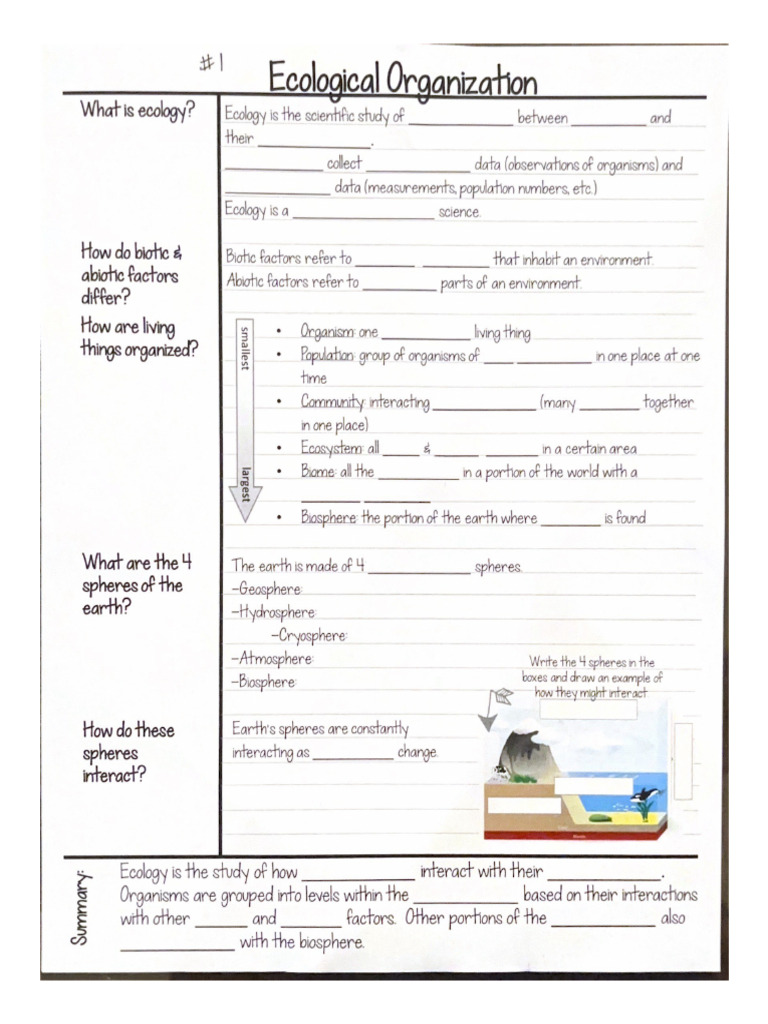 #1
Ecological Organization
What is ecology?
Ecology is the scientific study of ____________ between _________ and
their _____________.
____________ collect ____________ data (observations of organisms) and
____________ data (measurements, population numbers, etc.)
Ecology is a ________________ science.
How do biotic &
abiotic factors
differ?
Biotic factors refer to _______ ________ that inhabit an environment.
Abiotic factors refer to _________ parts of an environment.
How are living
things organized?
smallest
largest
• Organism: one __________ living thing
• Population: group of organisms of ____ _________ in one place at one
time
• Community: interacting ____________ (many _______ together
in one place)
• Ecosystem: all _____ & _____ ______ in a certain area
• Biome: all the __________ in a portion of the world with a
_______ ________
• Biosphere: the portion of the earth where _______ is found
What are the 4
spheres of the
earth?
The earth is made of 4 ____________ spheres.
-Geosphere:
-Hydrosphere:
-Cryosphere:
-Atmosphere:
-Biosphere:
Write the 4 spheres in the
boxes and draw an example of
how they might interact
How do these
spheres
interact?
Earth's spheres are constantly
interacting as __________ change.
Summary:
Ecology is the study of how ____________ interact with their ____________.
Organisms are grouped into levels within the ___________ based on their interactions
with other ______ and _______ factors. Other portions of the ___________ also
____________ with the biosphere.